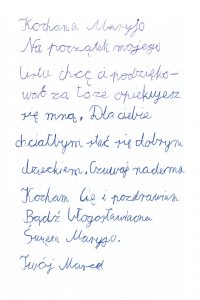 Kochana Maryjo
Na początek mojego
listu chcę ci podzięko-
wać za to że opiekujesz
się mną. Dla ciebie
chciałbym stać się dobrym
dzieckiem. Czuwaj nademną
Kocham Cię i pozdrawiam
Bądź błogosławiona
Święta Maryjo.
Twój Marcel